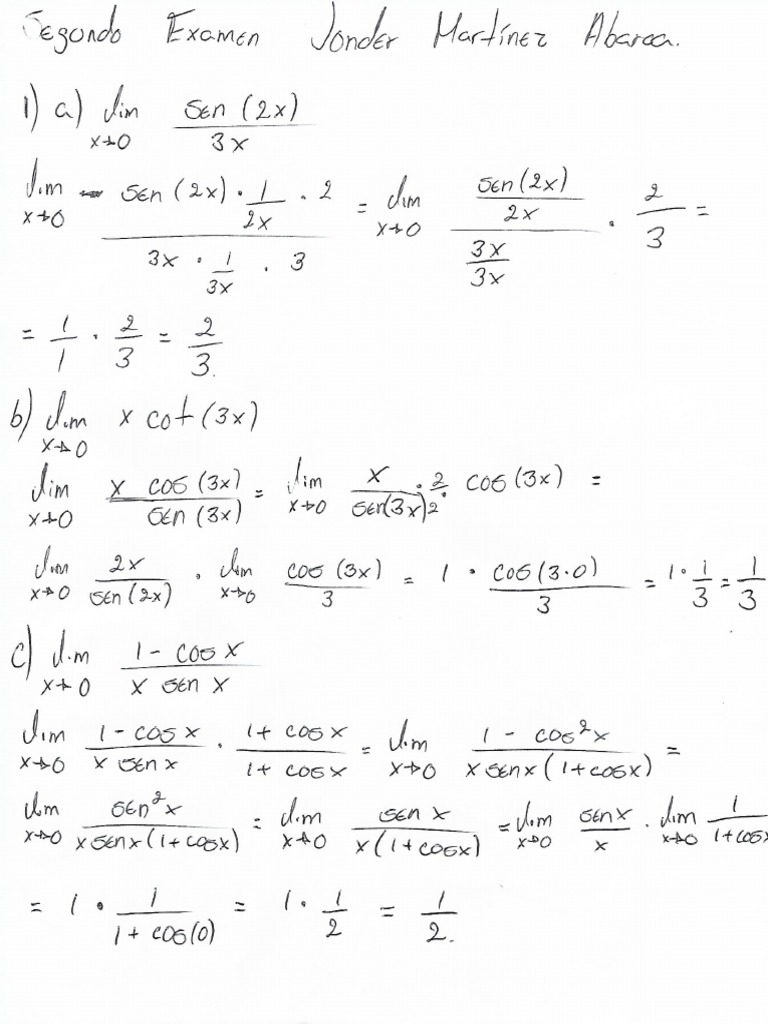 Segundo Examen Jonder Martínez Abarca.
1) a) lim x→0 sen (2x) / 3x
lim x→0 sen (2x) · 1/2x · 2 / 3x · 1/3x · 3 = lim x→0 sen(2x)/2x / 3x/3x · 2/3 =
= 1/1 · 2/3 = 2/3.
b) lim x→0 x cot (3x)
lim x→0 x cos (3x) / sen (3x) = lim x→0 x / sen(3x) · 2/2 · cos (3x) =
lim x→0 2x / sen (2x) · lim x→0 cos (3x) / 3 = 1 · cos (3·0) / 3 = 1 · 1/3 = 1/3
c) lim x→0 1 - cos x / x sen x
lim x→0 1 - cos x / x sen x · 1 + cos x / 1 + cos x = lim x→0 1 - cos²x / x sen x (1 + cos x) =
lim x→0 sen²x / x sen x (1 + cos x) = lim x→0 sen x / x (1 + cos x) = lim x→0 sen x / x · lim x→0 1 / 1 + cos x
= 1 · 1 / 1 + cos(0) = 1 · 1/2 = 1/2.